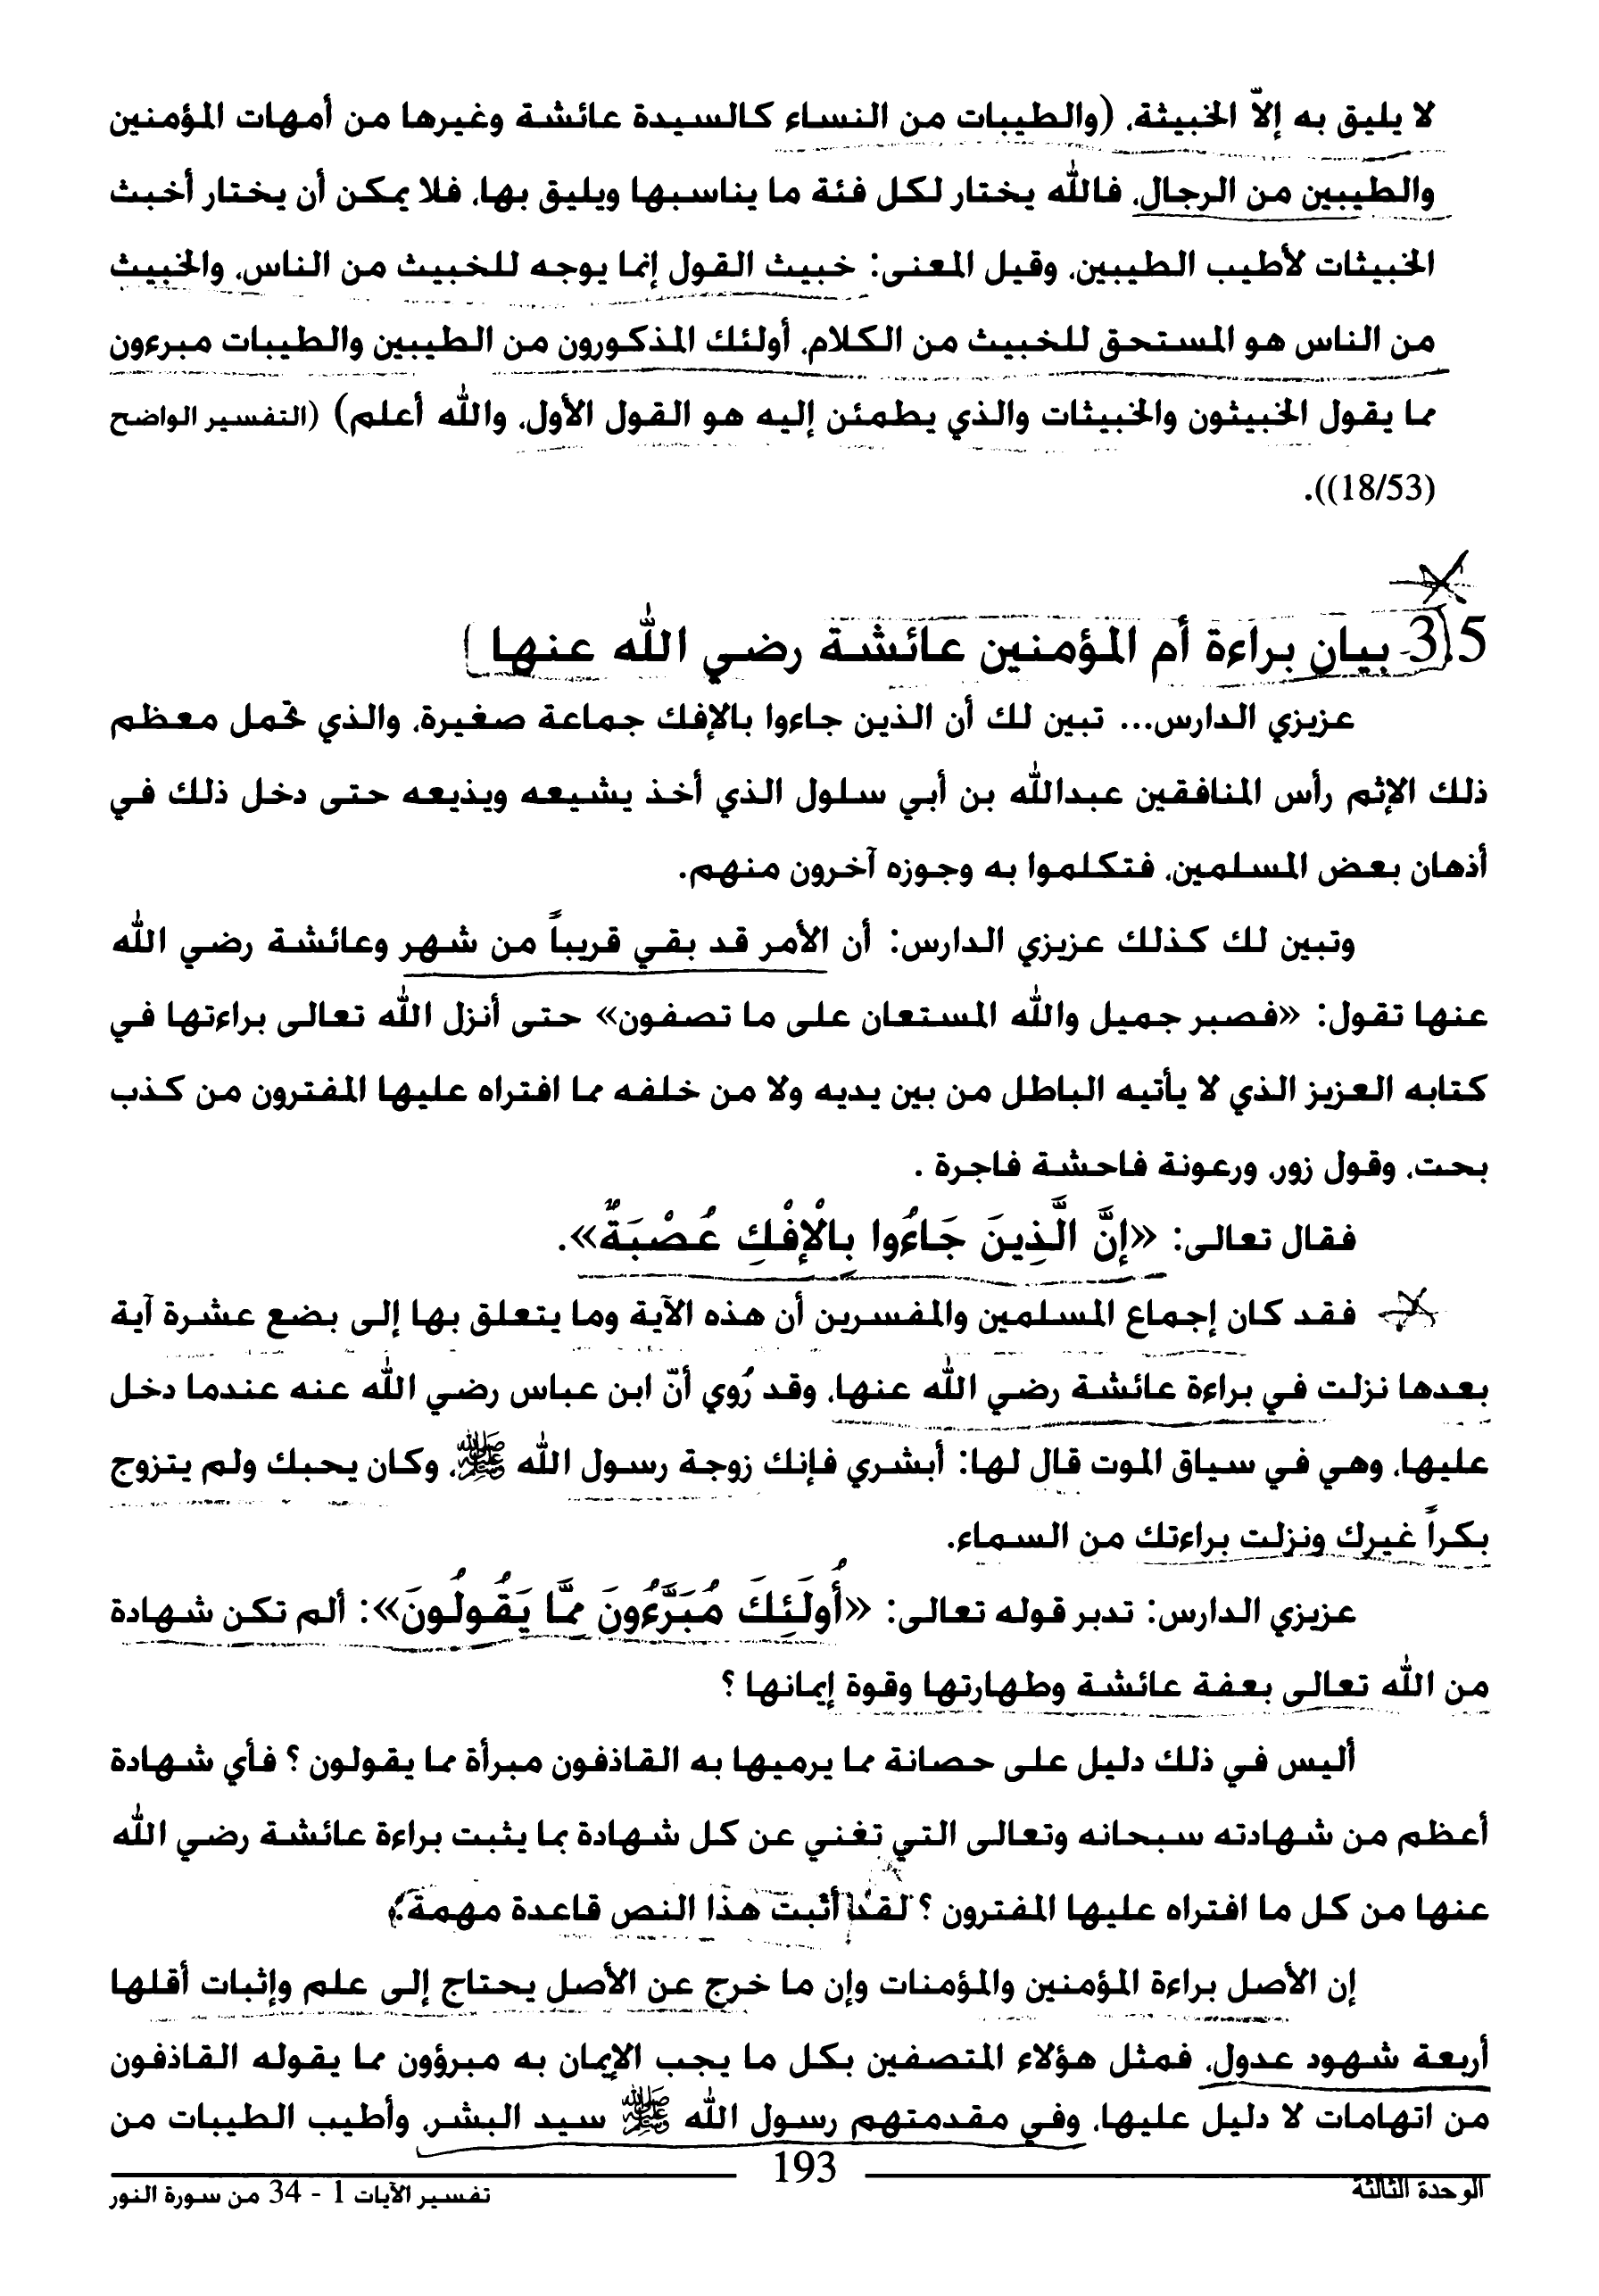 لا يليق به إلاّ الخبيثة، (والطيبات من النساء كالسيدة عائشة وغيرها من أمهات المؤمنين
والطيبين من الرجال، فالله يختار لكل فئة ما يناسبها ويليق بها، فلا يمكن أن يختار أخبث
الخبيثات لأطيب الطيبين، وقيل المعنى: خبيث القول إنما يوجه للخبيث من الناس، والخبيث
من الناس هو المستحق للخبيث من الكلام، أولئك المذكورون من الطيبين والطيبات مبرءون
مما يقول الخبيثون والخبيثات والذي يطمئن إليه هو القول الأول، والله أعلم) (التفسير الواضح
(18/53)).
3.5 - بيان براءة أم المؤمنين عائشة رضي الله عنها
عزيزي الدارس... تبين لك أن الذين جاءوا بالإفك جماعة صغيرة، والذي تحمل معظم
ذلك الإثم رأس المنافقين عبدالله بن أبي سلول الذي أخذ يشيعه ويذيعه حتى دخل ذلك في
أذهان بعض المسلمين، فتكلموا به وجوزه آخرون منهم.
وتبين لك كذلك عزيزي الدارس: أن الأمر قد بقي قريباً من شهر وعائشة رضي الله
عنها تقول: «فصبر جميل والله المستعان على ما تصفون» حتى أنزل الله تعالى براءتها في
كتابه العزيز الذي لا يأتيه الباطل من بين يديه ولا من خلفه مما افتراه عليها المفترون من كذب
بحت، وقول زور، ورعونة فاحشة فاجرة .
فقال تعالى: «إِنَّ الَّذِينَ جَاءُوا بِالْإِفْكِ عُصْبَةٌ».
فقد كان إجماع المسلمين والمفسرين أن هذه الآية وما يتعلق بها إلى بضع عشرة آية
بعدها نزلت في براءة عائشة رضي الله عنها، وقد رُوي أنّ ابن عباس رضي الله عنه عندما دخل
عليها، وهي في سياق الموت قال لها: أبشري فإنك زوجة رسول الله ﷺ، وكان يحبك ولم يتزوج
بكراً غيرك ونزلت براءتك من السماء.
عزيزي الدارس: تدبر قوله تعالى: «أُولَئِكَ مُبَرَّءُونَ مِمَّا يَقُولُونَ»: ألم تكن شهادة
من الله تعالى بعفة عائشة وطهارتها وقوة إيمانها ؟
أليس في ذلك دليل على حصانة مما يرميها به القاذفون مبرأة مما يقولون ؟ فأي شهادة
أعظم من شهادته سبحانه وتعالى التي تغني عن كل شهادة بما يثبت براءة عائشة رضي الله
عنها من كل ما افتراه عليها المفترون ؟ لقد أثبت هذا النص قاعدة مهمة:
إن الأصل براءة المؤمنين والمؤمنات وإن ما خرج عن الأصل يحتاج إلى علم وإثبات أقلها
أربعة شهود عدول، فمثل هؤلاء المتصفين بكل ما يجب الإيمان به مبرؤون مما يقوله القاذفون
من اتهامات لا دليل عليها، وفي مقدمتهم رسول الله ﷺ سيد البشر، وأطيب الطيبات من
193
الوحدة الثالثة
تفسير الآيات 1 - 34 من سورة النور